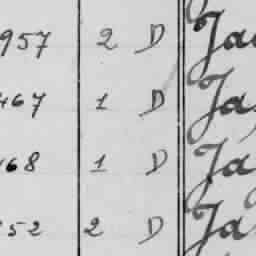 957 2 D Ja
467 1 D Ja
468 1 D Ja
252 2 D Ja